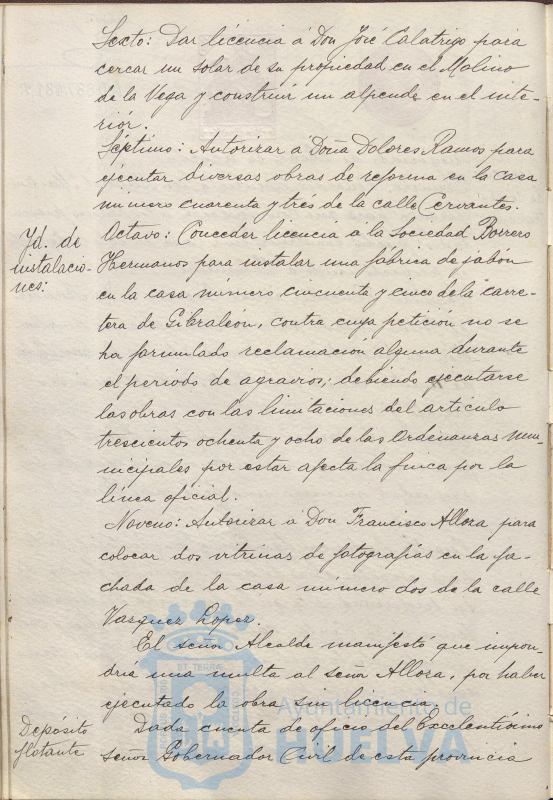 Sexto: Dar licencia á Don José Calatrigo para
cercar un solar de su propiedad en el Molino
de la Vega y construir un alpende en el inte-
riór.
Séptimo: Autorizar á Doña Dolores Ramos para
ejecutar diversas obras de reforma en la casa
número cuarenta y trés de la calle Cervantes.
Yd. de
instalacio-
nes:
Octavo: Conceder licencia á la Sociedad Borrero
Hermanos para instalar una fábrica de jabón
en la casa número cincuenta y cinco de la carre-
tera de Gibraleón, contra cuya petición no se
ha formulado reclamación alguna durante
el periodo de agravios; debiendo ejecutarse
las obras con las limitaciones del artículo
trescientos ochenta y ocho de las Ordenanzas mu-
nicipales por estar afecta la finca por la
línea oficial.
Noveno: Autorizar á Don Francisco Allora para
colocar dos vitrinas de fotografías en la fa-
chada de la casa número dos de la calle
Vazquez Lopez.
El señor Alcalde manifestó que impon-
dría una multa al señor Allora, por haber
ejecutado la obra sin licencia.
Depósito
flotante
Dada cuenta de oficio del Excelentísimo
señor Gobernador Civil de esta provincia
Ayuntamiento de
HUELVA